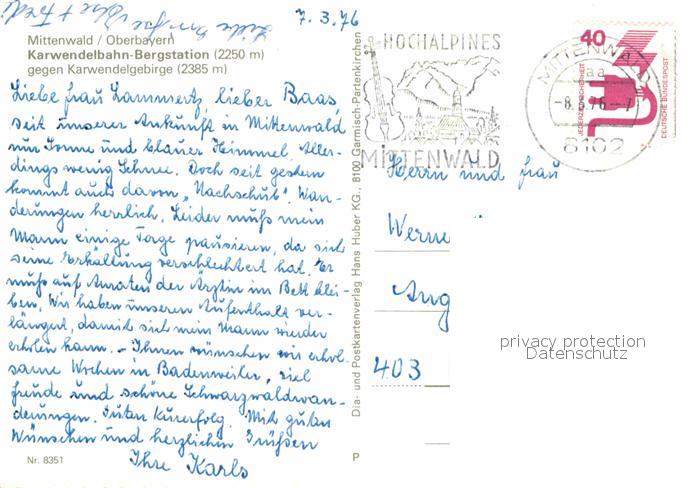 7.3.76
Mittenwald / Oberbayern
Karwendelbahn-Bergstation (2250 m)
gegen Karwendelgebirge (2385 m)
Liebe Frau Lammertz, lieber Baas,
seit unserer Ankunft in Mittenwald
nur Sonne und blauer Himmel. Aller-
dings wenig Schnee. Doch seit gestern
kommt auch davon „Nachschub". Wan-
derungen herrlich. Leider muß mein
Mann einige Tage pausieren, da sich
seine Erkältung verschlechtert hat. Er
muß auf Anraten der Ärztin im Bett blei-
ben. Wir haben unseren Aufenthalt ver-
längert, damit sich mein Mann wieder
erholen kann. - Ihnen wünschen wir erhol-
same Wochen in Badenweiler, viel
Freude und schöne Schwarzwaldwan-
derungen. Guten Kurerfolg. Mit guten
Wünschen und herzlichen Grüßen
Ihre Karls
Nr. 8351
Dia- und Postkartenverlag Hans Huber KG., 8100 Garmisch-Partenkirchen
P
HOCHALPINES
MITTENWALD
MITTENWALD
aa
-8.3.76-7
8102
40
JEDERZEIT SICHERHEIT
DEUTSCHE BUNDESPOST
Herrn und Frau
Werne
Aug
403
privacy protection
Datenschutz